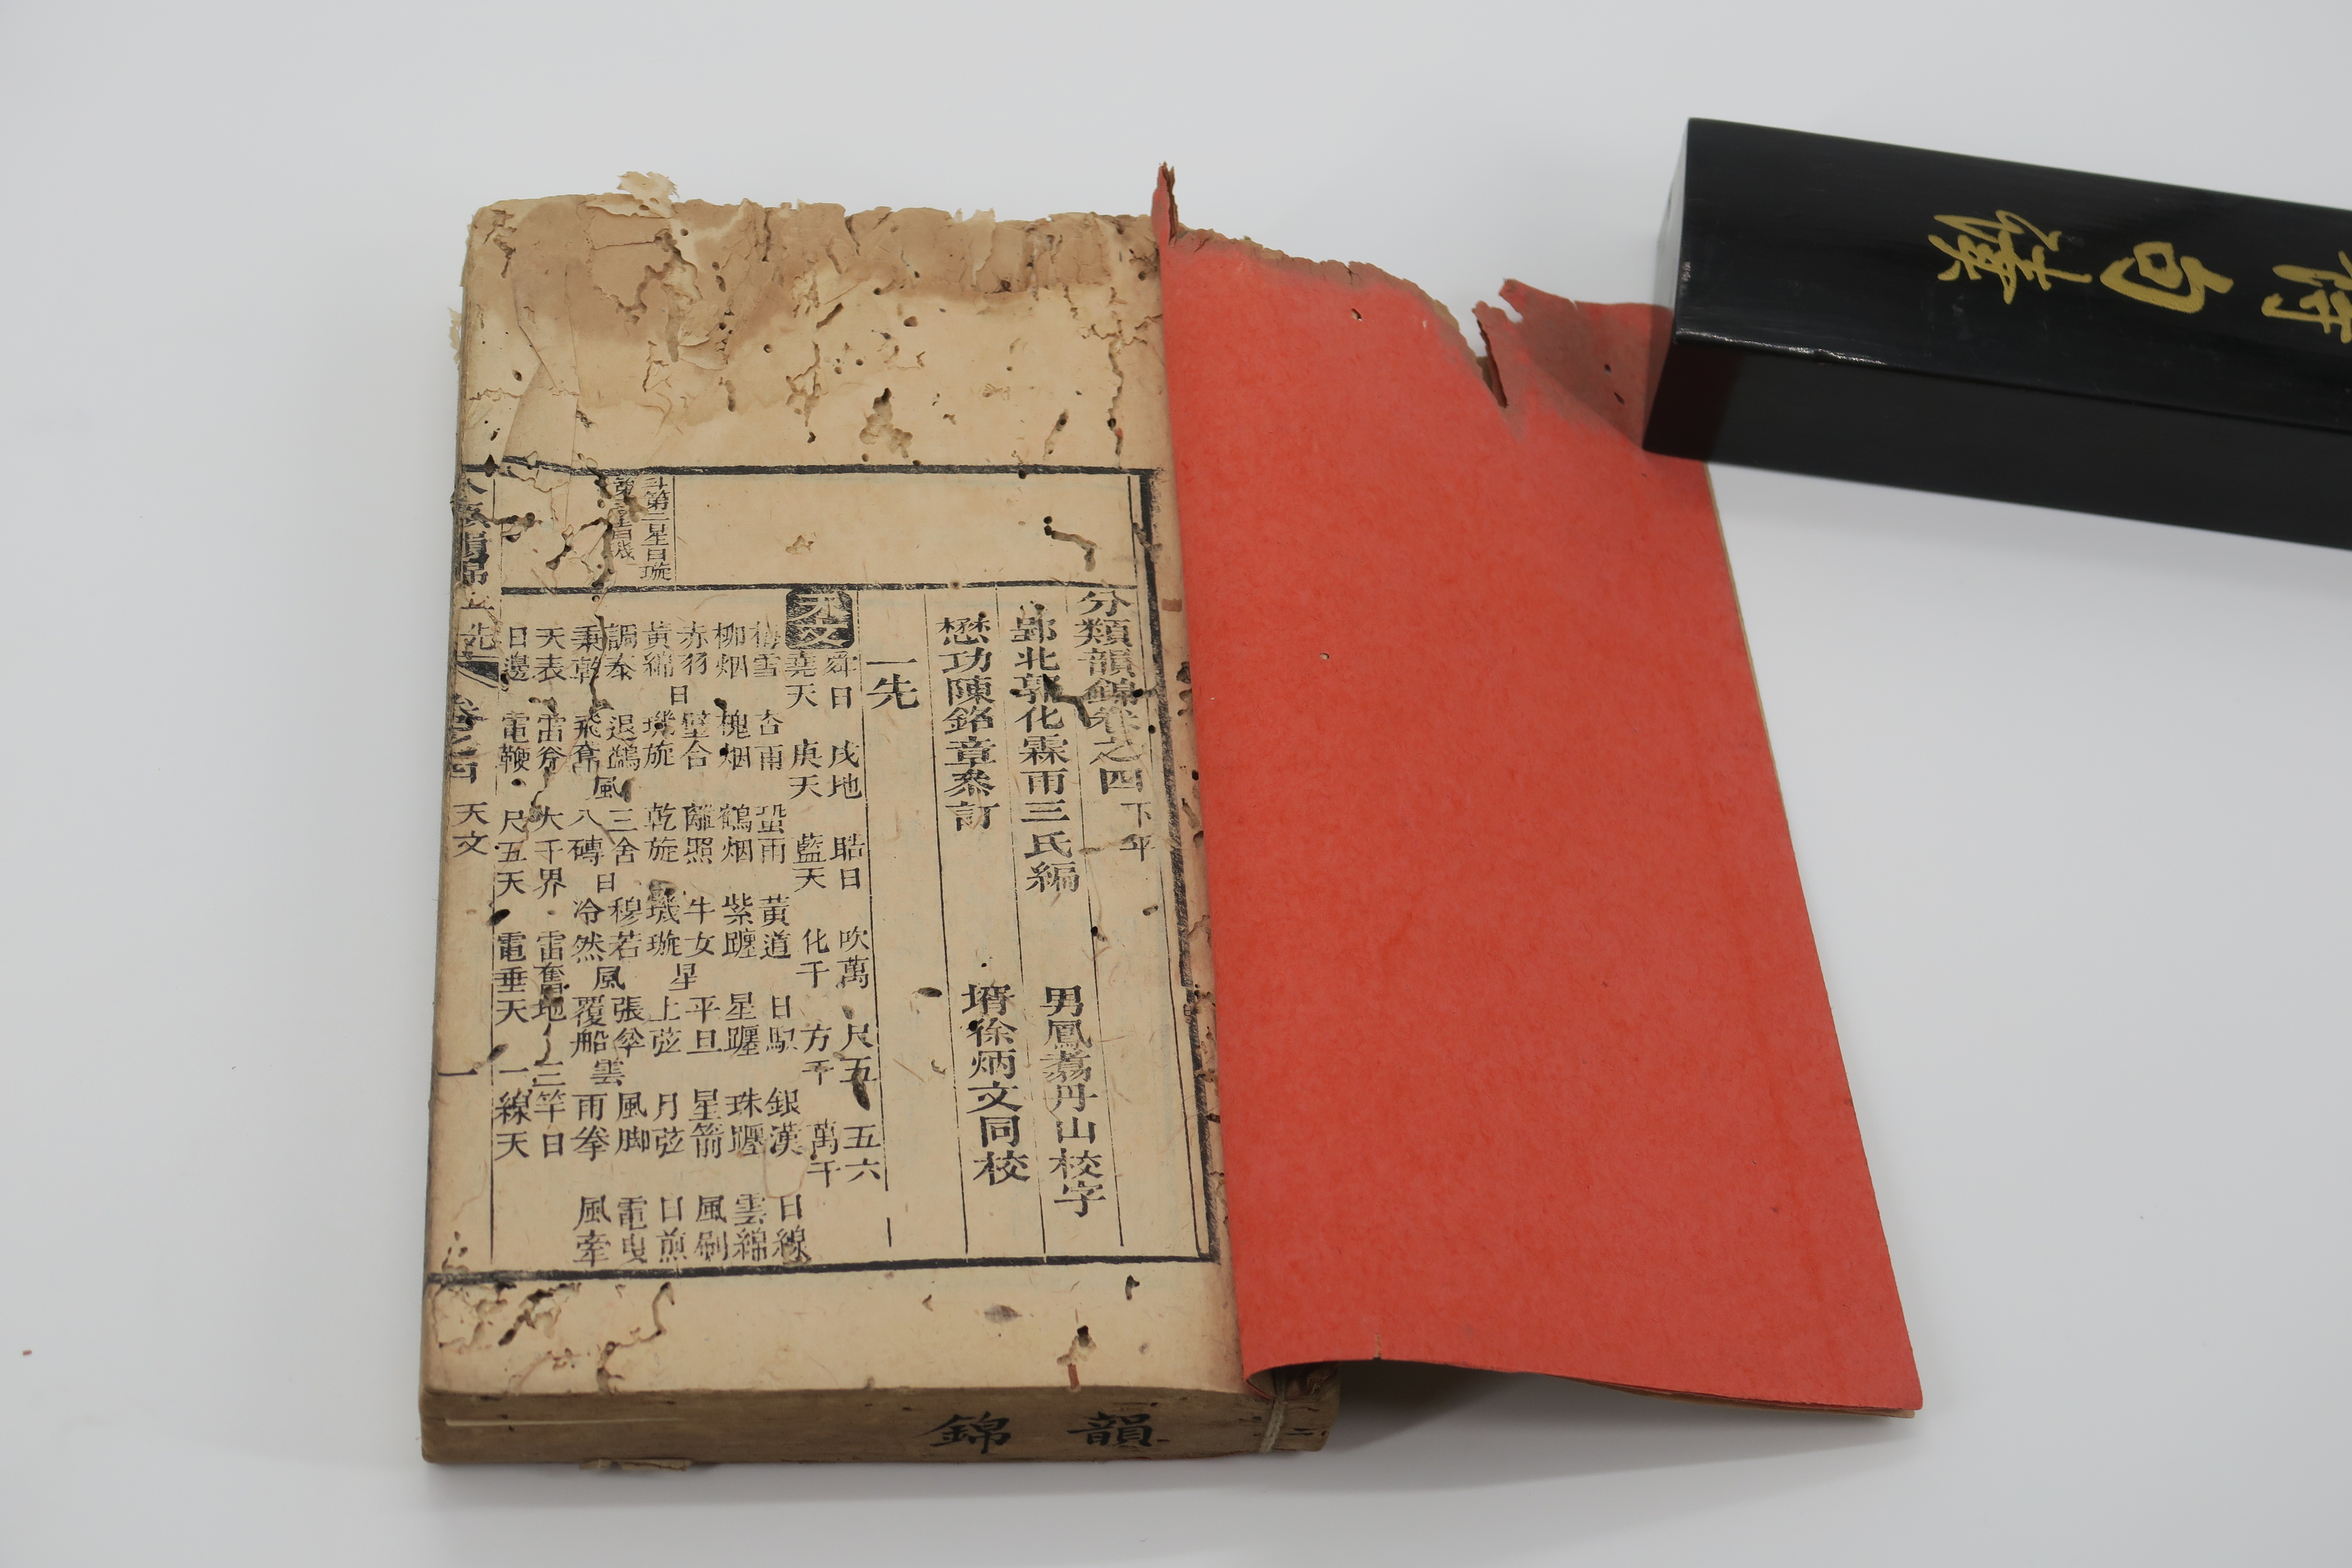 分類韻錦卷之四 下平
鄞北郭化霖雨三氏編 男鳳翥丹山校字
懋功陳銘章叅訂 壻徐炳文同校
一先
天文
舜日 戌地 晧日 吹萬 尺五 五六
堯天 庚天 藍天 化千 方千 萬千
梅雪 杏雨 蛩雨 黃道 日馭 銀漢 日線
柳烟 槐烟 鶴烟 紫躔 星躔 珠躔 雲綿
赤羽 璧合 離照 牛女 平旦 星箭 風刷
黃綿日 璣旋 乾旋 璣璇星 上弦 月弦 日煎
調奏 退鷁 三舍 穆若 張傘 風脚 電曳
秉乾 飛奮風 八磚日 冷然風 覆船雲 雨拳 風牽
天表 雷斧 大千界 雷奮地 三竿日
日邊 電鞭 尺五天 電垂天 一線天
斗第二星曰璇
卷之四 天文 一
韻錦
句